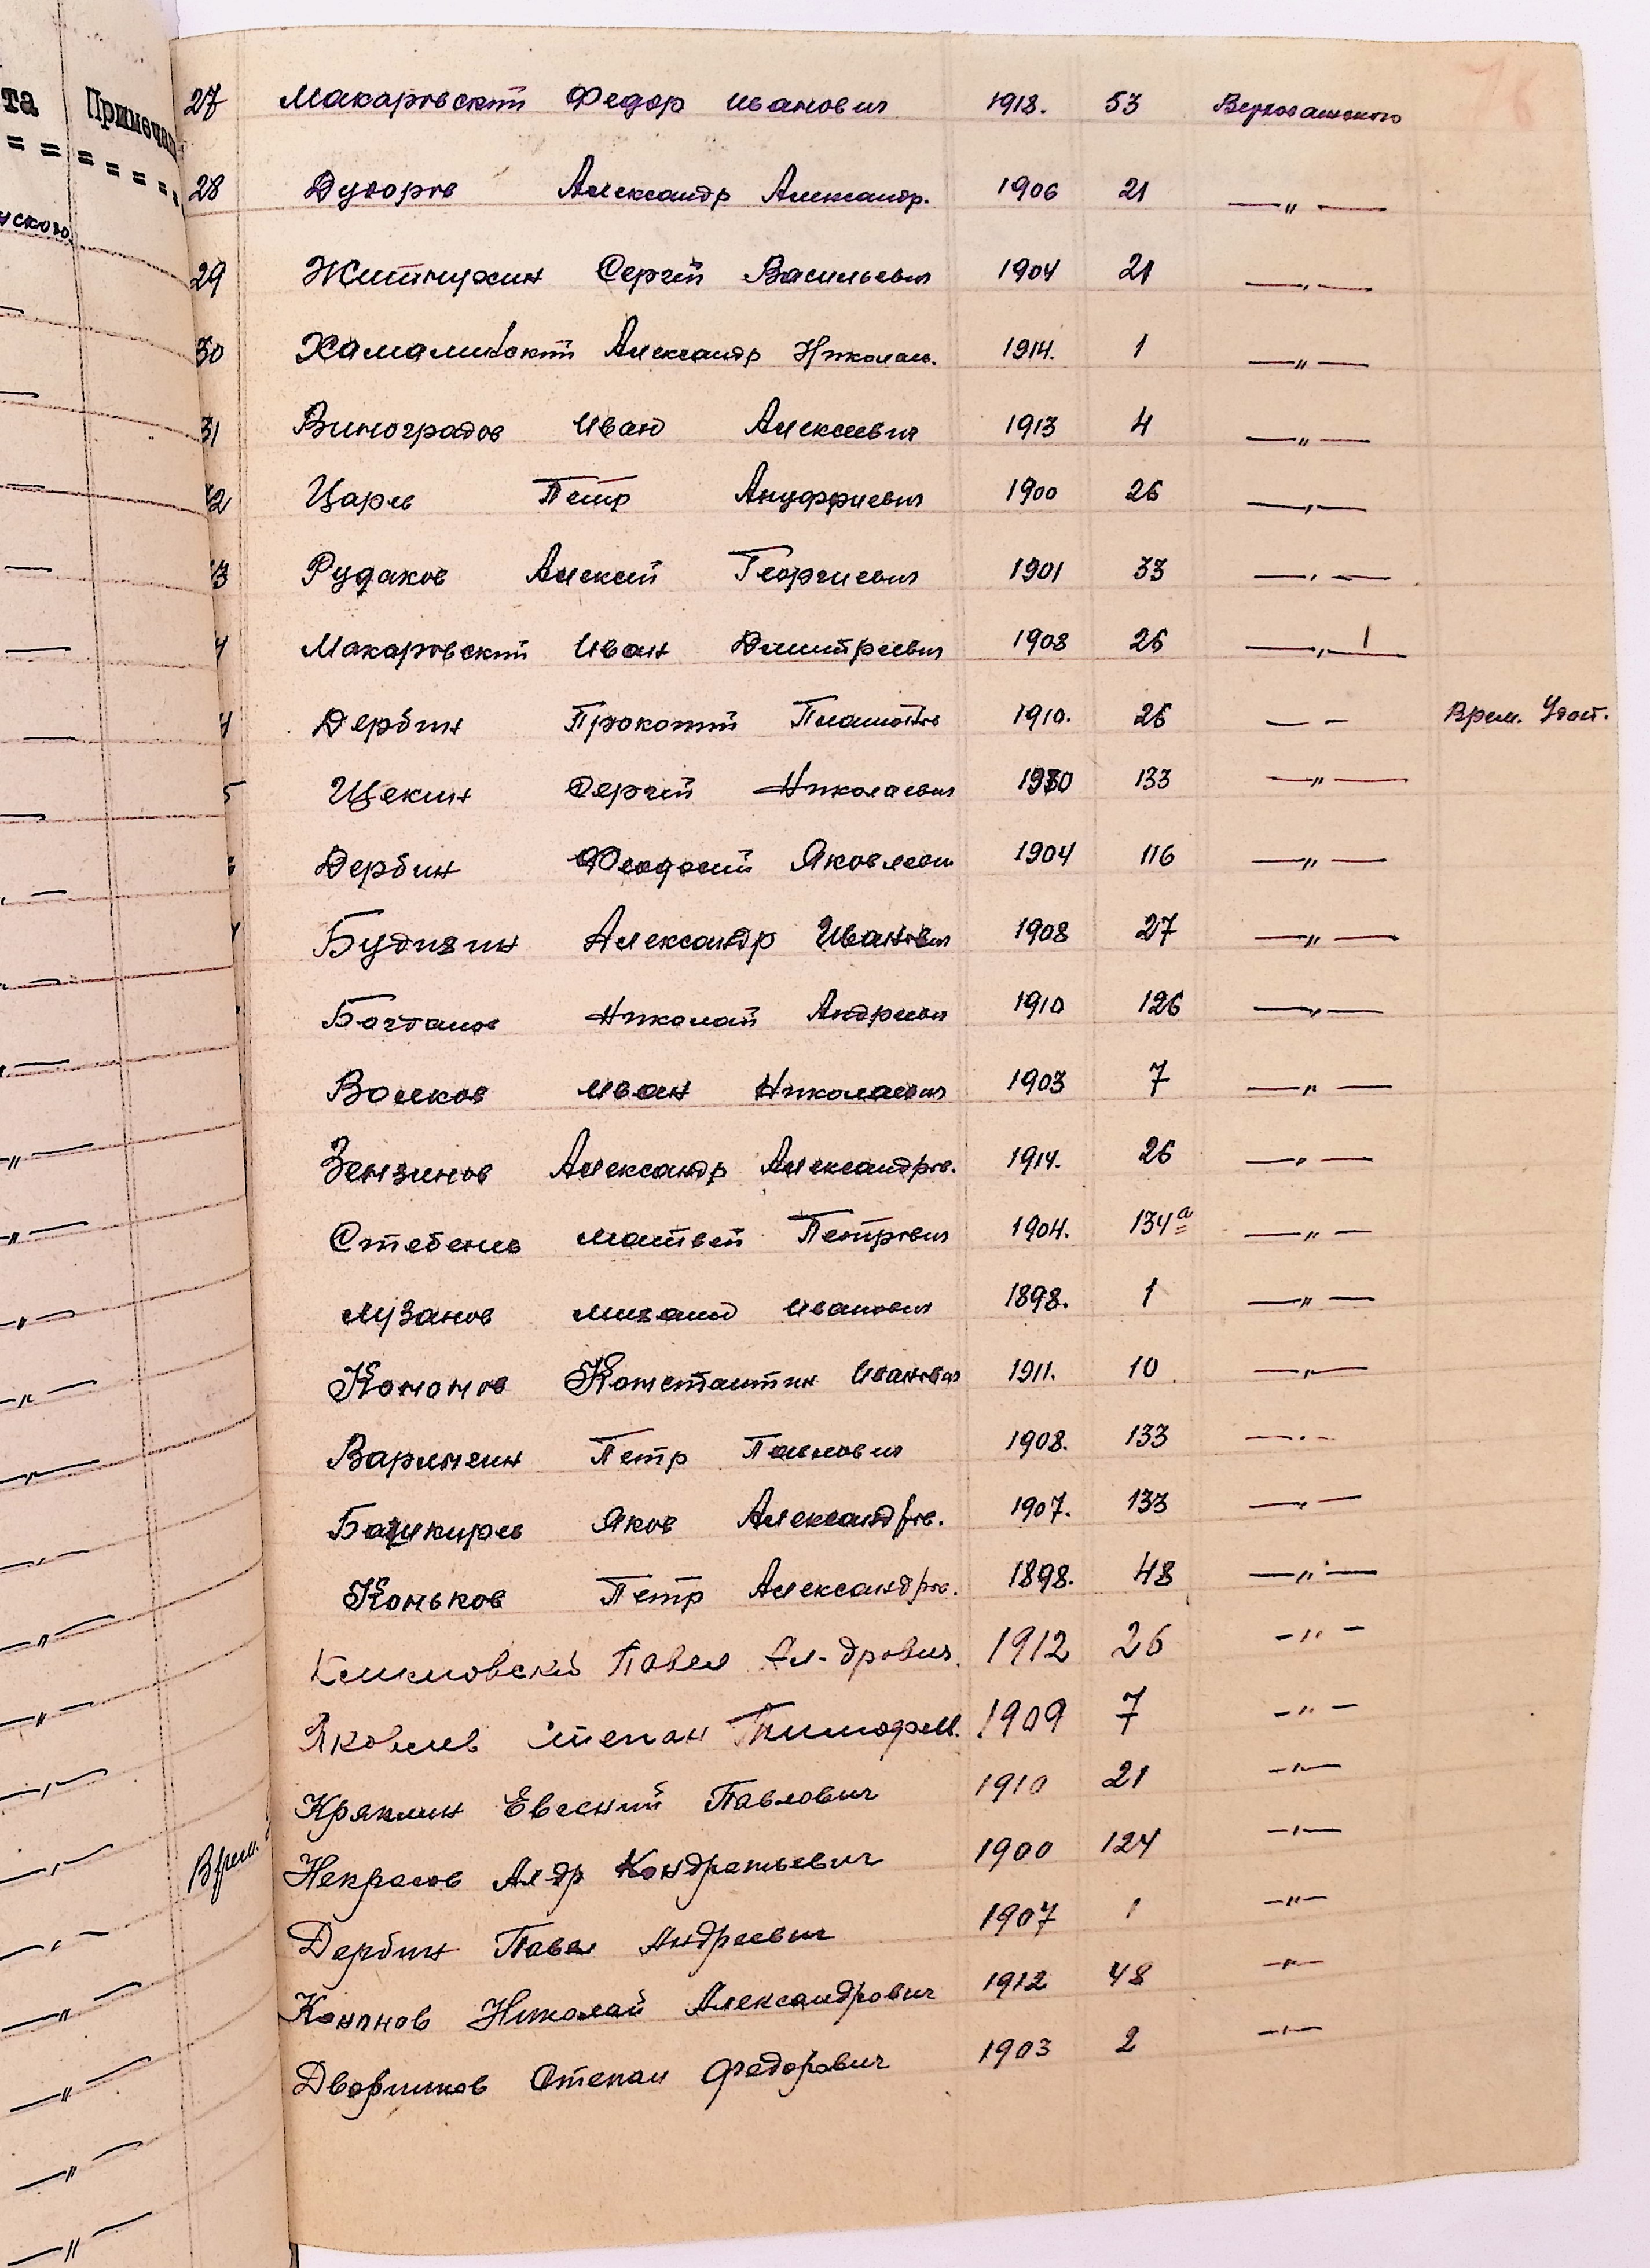 та Примечан
= = = = = = =
нского.
Врем.
27 Макаровский Федор Иванович 1918. 53 Верховажского
28 Дудоров Александр Александр. 1906 21 —„—
29 Житнухин Сергей Васильевич 1904 21 —„—
30 Александр Николаев. 1914. 1 —„—
31 Виноградов Иван Алексеевич 1913 4 —„—
32 Царев Петр Ануфриевич 1900 26 —„—
33 Рудаков Алексей Георгиевич 1901 33 —„—
4 Макаровский Иван Дмитриевич 1908 26 —„—
4 Дербин Прокопий Платонов 1910. 26 — — Врем. Удост.
5 Щекин Сергей Николаевич 1930 133 —„—
Дербин Феодосий Яковлевич 1904 116 —„—
Будизин Александр Иванович 1908 27 —„—
Богданов Николай Андреевич 1910 126 —„—
Волков Иван Николаевич 1903 7 —„—
Зензинов Александр Александров. 1914. 26 —„—
Стебень Матвей Петрович 1904. 134а —„—
Музанов Михаил Иванович 1898. 1 —„—
Кононов Константин Иванович 1911. 10 —„—
Варингин Петр Павлович 1908. 133 —„—
Башкирев Яков Александров. 1907. 133 —„—
Коньков Петр Александров. 1898. 48 —„—
Климовский Павел Ал-дрович. 1912 26 —„—
Яковлев Степан Тимофеев. 1909 7 —„—
Кряклин Евгений Павлович 1910 21 —„—
Некрасов Ал-др Кондратьевич 1900 124 —„—
Дербин Павел Андреевич 1907 1 —„—
Кононов Николай Александрович 1912 48 —„—
Дворников Степан Федорович 1903 2 —„—